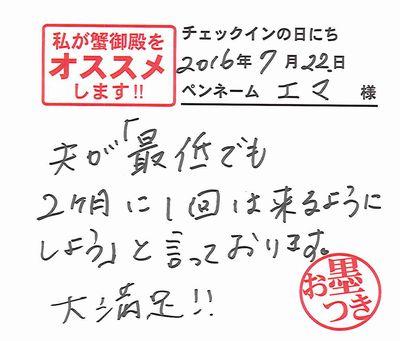 私が蟹御殿を
オススメ
します!!
チェックインの日にち
2016年7月22日
ペンネーム エマ 様
夫が「最低でも
2ケ月に1回は来るように
しよう」と言っております。
大満足!!
お墨つき